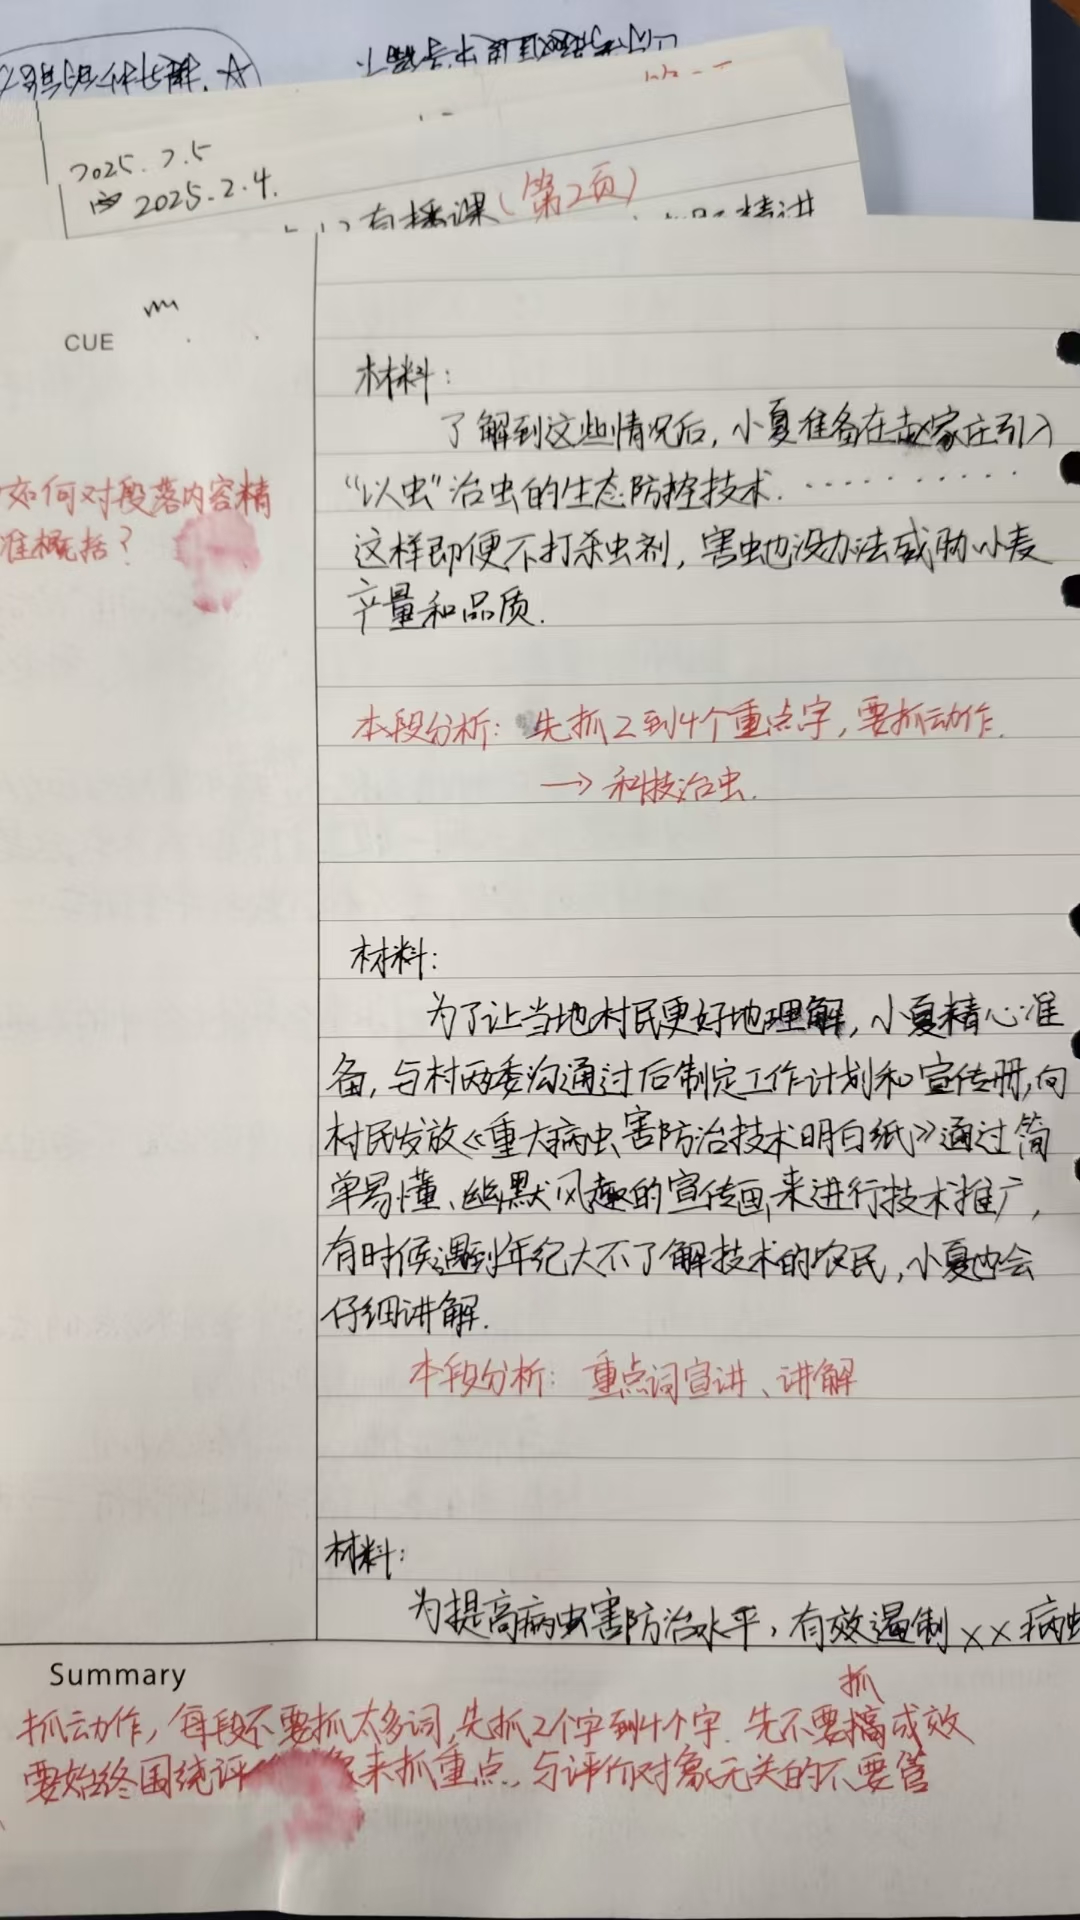 2025.2.5
2025.2.4.
直播课(第2页)
精讲
CUE
如何对段落内容精
准概括？
材料：
了解到这些情况后，小夏准备在赵家庄引入
“以虫”治虫的生态防控技术. ··········
这样即便不打杀虫剂，害虫也没办法威胁小麦
产量和品质.
本段分析：先抓2到4个重点字，要抓动作.
→ 科技治虫.
材料：
为了让当地村民更好地理解，小夏精心准
备，与村两委沟通过后制定工作计划和宣传册,向
村民发放《重大病虫害防治技术明白纸》通过简
单易懂、幽默风趣的宣传画,来进行技术推广，
有时候遇到年纪大不了解技术的农民，小夏也会
仔细讲解.
本段分析：重点词宣讲、讲解
材料：
为提高病虫害防治水平，有效遏制××病虫
Summary
抓动作，每段不要抓太多词,先抓2个字到4个字. 先不要抓成效
要始终围绕评 象来抓重点，与评价对象无关的不要管